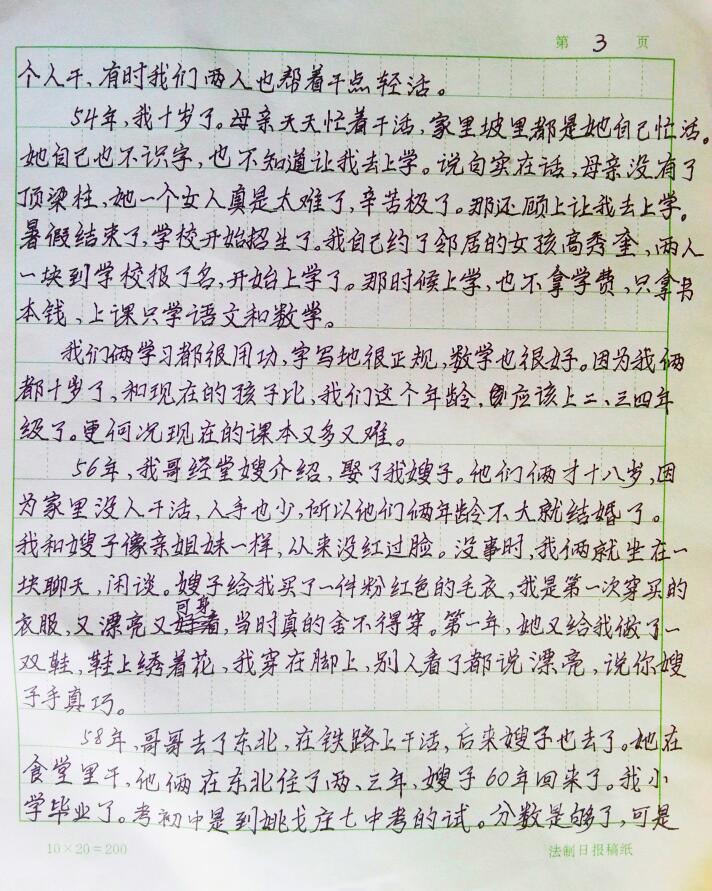 第 3 页
个人干、有时我们两人也帮着干点轻活。
54年,我十岁了。母亲天天忙着干活,家里坡里都是她自己忙活。
她自己也不识字,也不知道让我去上学。说句实在话,母亲没有了
顶梁柱,她一个女人真是太难了,辛苦极了。那还顾上让我去上学。
暑假结束了,学校开始招生了。我自己约了邻居的女孩高秀奎,两人
一块到学校报了名,开始上学了。那时候上学,也不拿学费,只拿书
本钱、上课只学语文和数学。
我们俩学习都很用功,字写地很正规,数学也很好。因为我俩
都十岁了,和现在的孩子比,我们这个年龄,应该上二、三四年
级了。更何况现在的课本又多又难。
56年,我哥经堂嫂介绍,娶了我嫂子。他们俩才十八岁,因
为家里没人干活,人手也少,所以他们俩年龄不大就结婚了。
我和嫂子像亲姐妹一样,从来没红过脸。没事时,我俩就坐在一
块聊天,闲谈。嫂子给我买了一件粉红色的毛衣,我是第一次穿买的
衣服,又漂亮又可身,当时真的舍不得穿。第一年,她又给我做了一
双鞋,鞋上绣着花,我穿在脚上,别人看了都说漂亮,说你嫂
子手真巧。
58年,哥哥去了东北,在铁路上干活,后来嫂子也去了。她在
食堂里干,他俩在东北住了两、三年、嫂子60年回来了。我小
学毕业了。考初中是到姚戈庄七中考的试。分数是够了,可是
10×20=200 法制日报稿纸